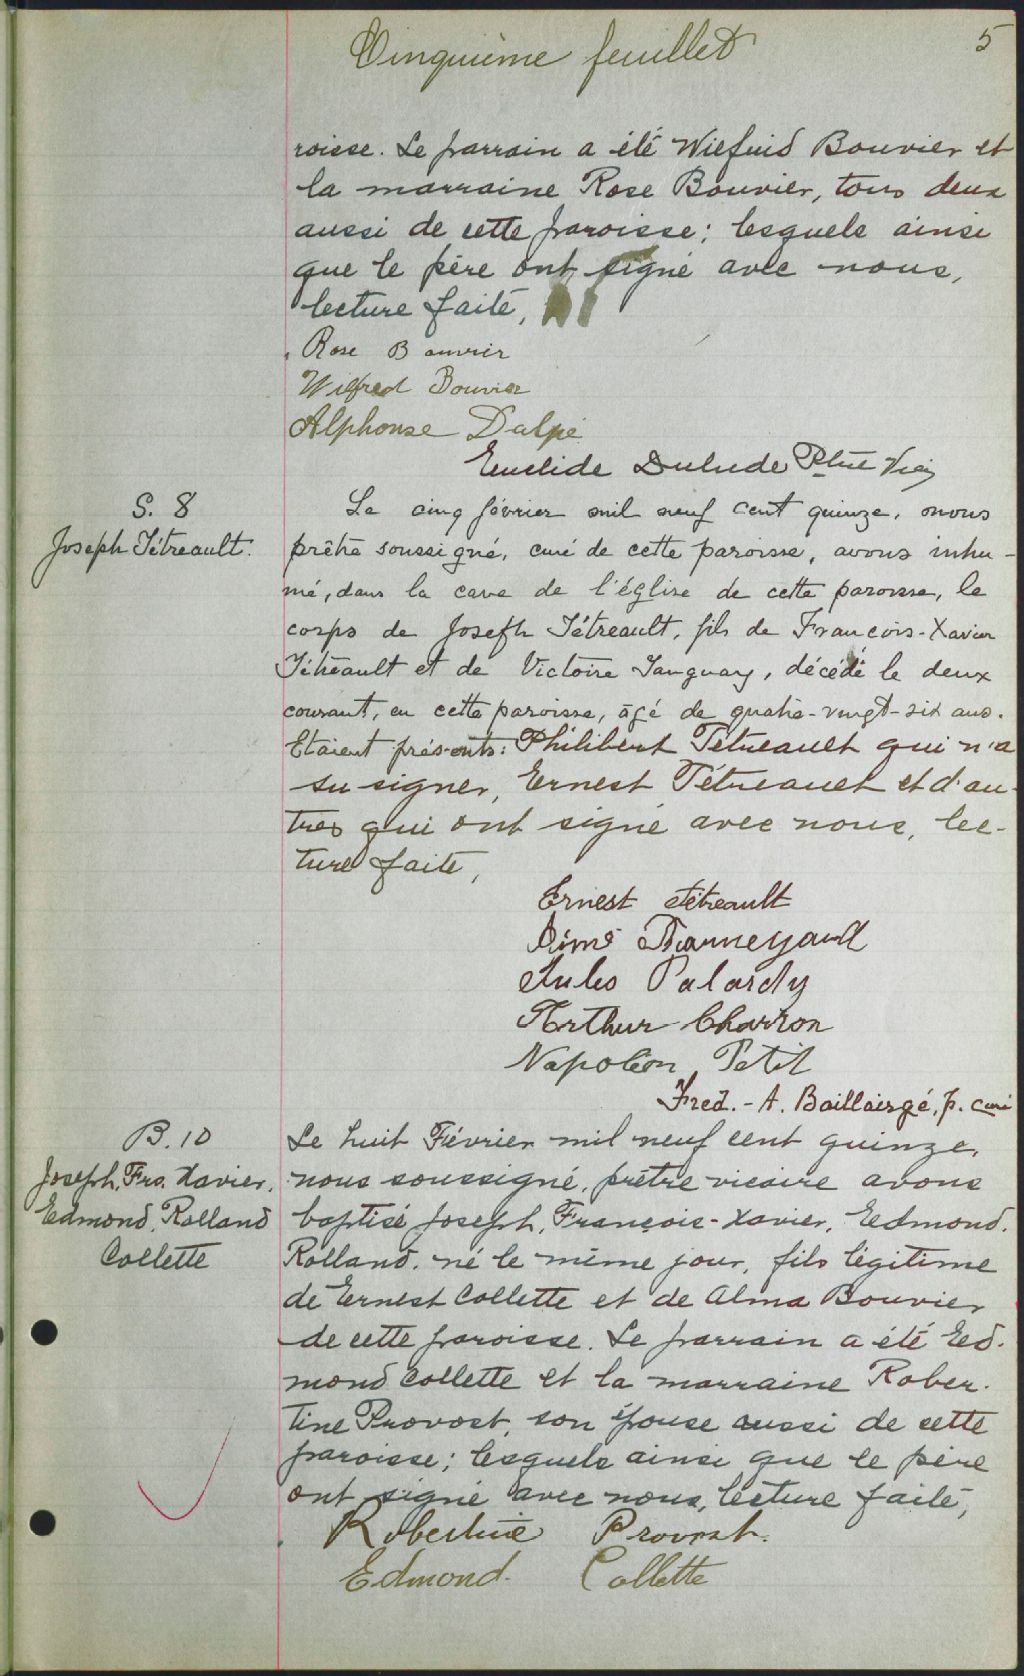 Cinquième feuillet
5
roisse. Le parrain a été Wilfrid Bouvier et
la marraine Rose Bouvier, tous deux
aussi de cette paroisse; lesquels ainsi
que le père ont signé avec nous,
lecture faite,
Rose Bouvier
Wilfred Bouvier
Alphonse Dalpé
Euclide Dulude Ptre Vic
S. 8
Joseph Tétreault.
Le cinq février mil neuf cent quinze, nous
prêtre soussigné, curé de cette paroisse, avons inhu-
mé, dans la cave de l'église de cette paroisse, le
corps de Joseph Tétreault, fils de François-Xavier
Tétreault et de Victoire Tanguay, décédé le deux
courant, en cette paroisse, âgé de quatre-vingt-six ans.
Etaient présents: Philibert Tétreault qui n'a
su signer, Ernest Tétreault et d'au-
tres qui ont signé avec nous, lec-
ture faite,
Ernest Tétreault
Aimé
Jules Palardy
Arthur Charron
Napoléon Petit
Fred.-A. Baillairgé, p. curé
B. 10
Joseph, Frs. Xavier,
Edmond, Rolland
Collette
Le huit Février mil neuf cent quinze,
nous soussigné, prêtre vicaire avons
baptisé Joseph, François-Xavier, Edmond,
Rolland, né le même jour, fils légitime
de Ernest Collette et de Alma Bouvier
de cette paroisse. Le parrain a été Ed-
mond Collette et la marraine Rober-
tine Provost, son épouse aussi de cette
paroisse; lesquels ainsi que le père
ont signé avec nous, lecture faite,
Robertine Provost.
Edmond. Collette